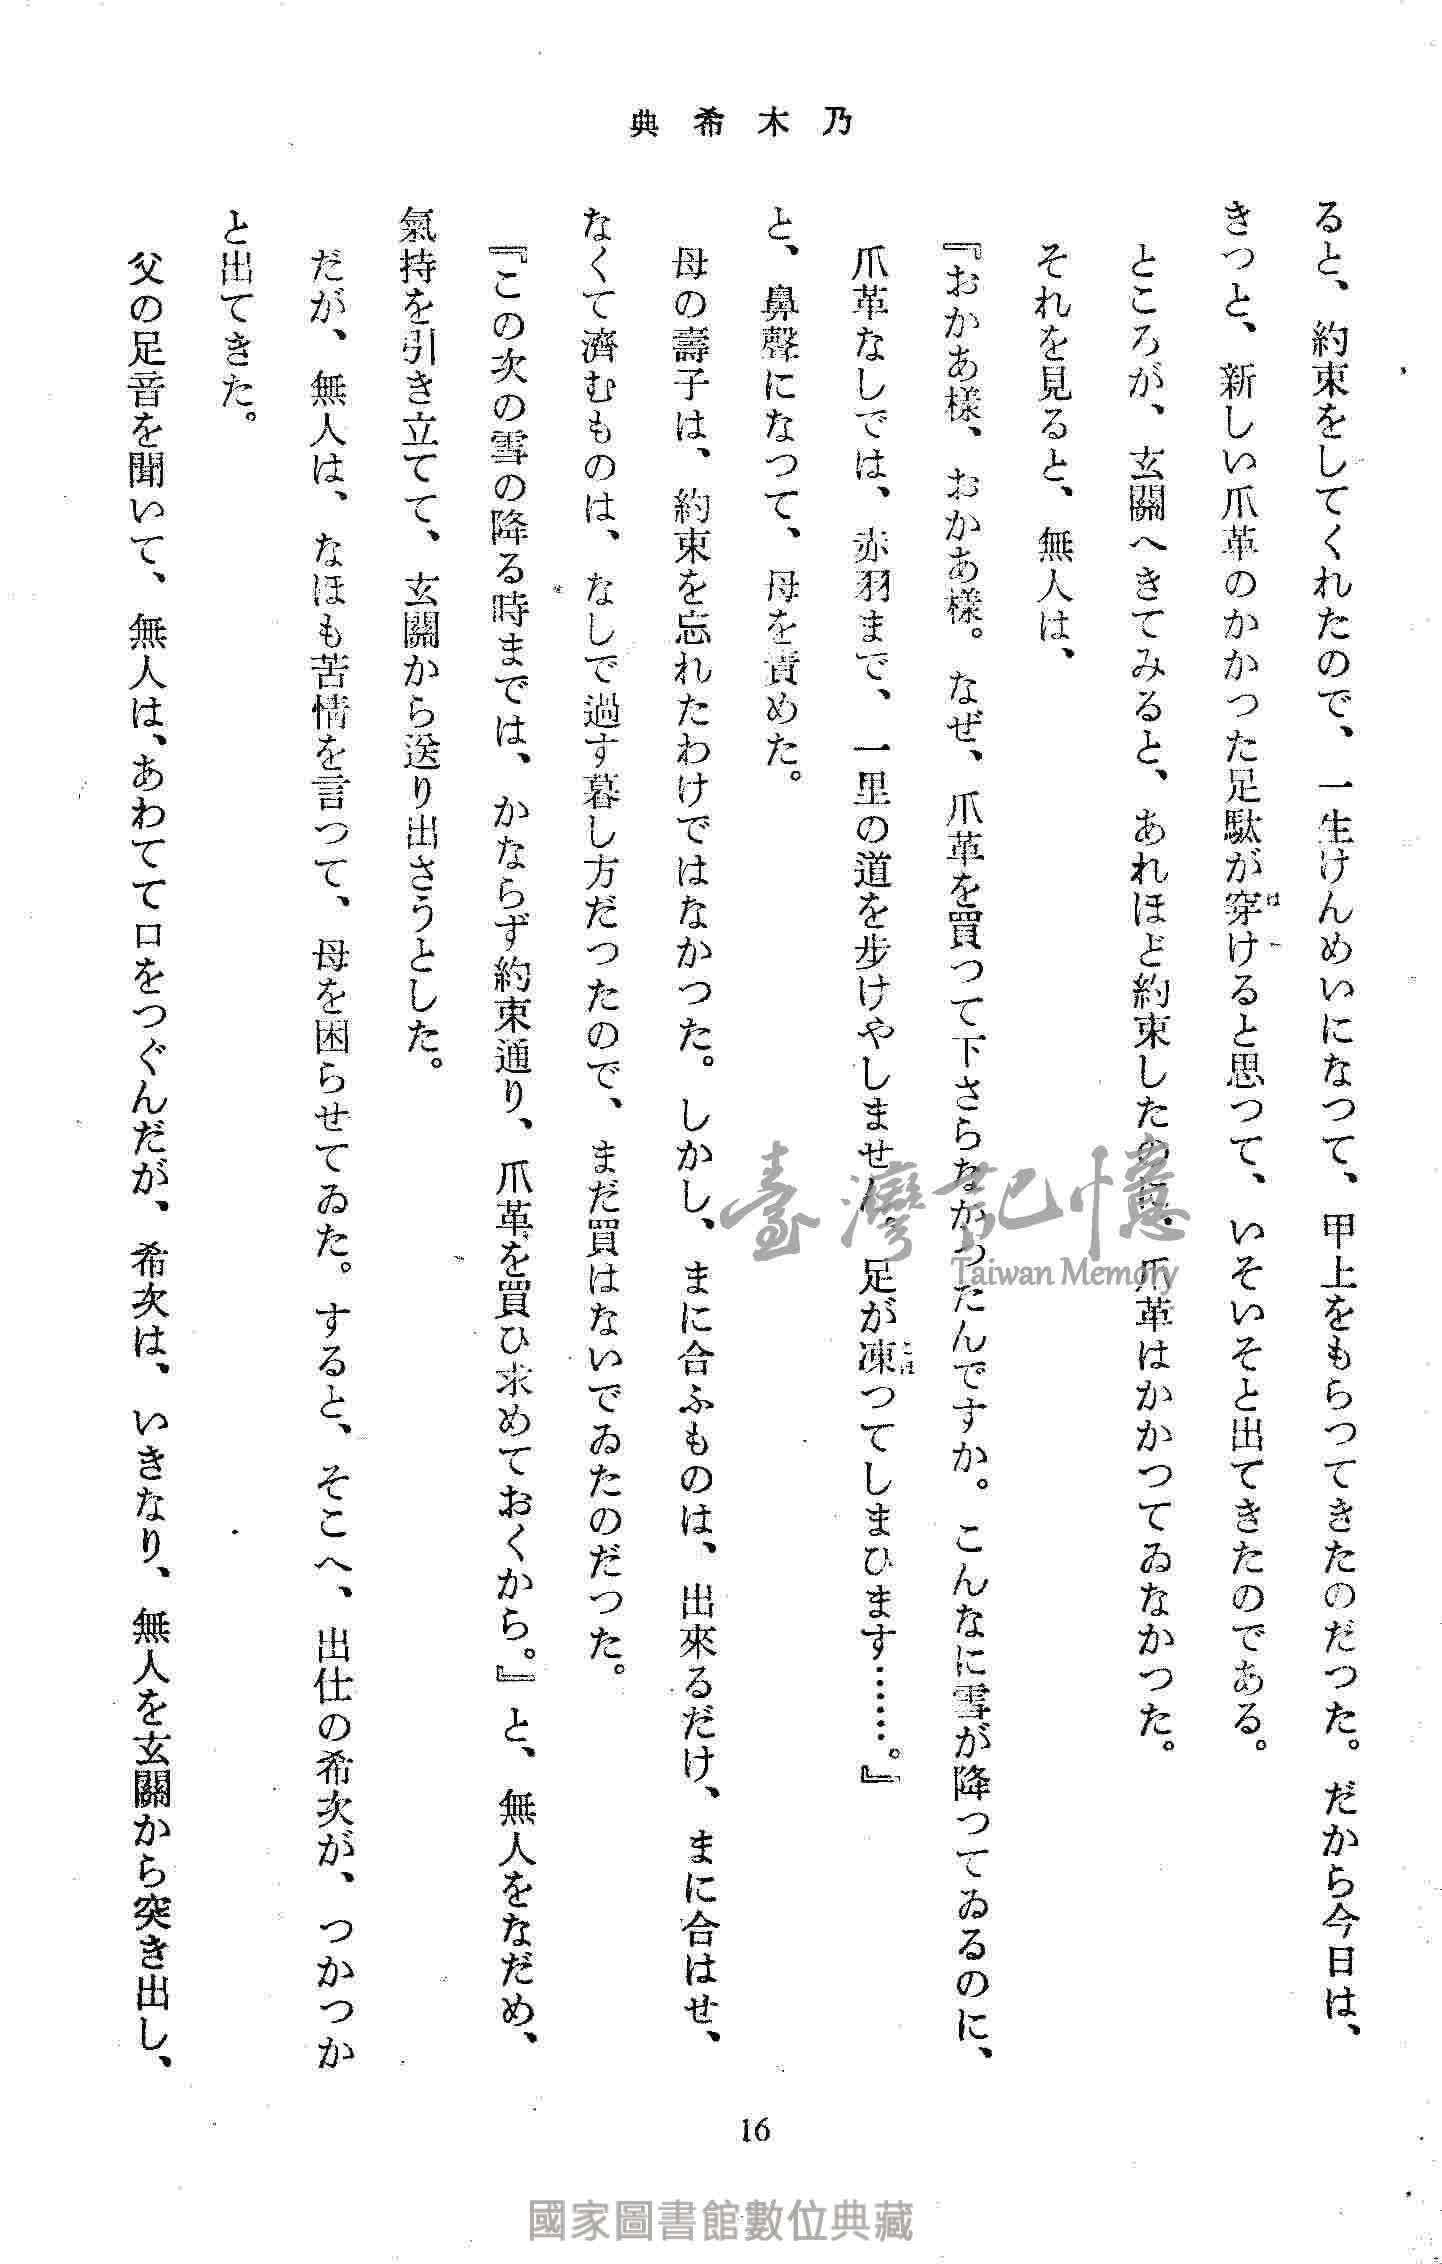 乃木希典
ると、約束をしてくれたので、一生けんめいになつて、甲上をもらつてきたのだつた。だから今日は、
きつと、新しい爪革のかかつた足駄が穿けると思つて、いそいそと出てきたのである。
は
ところが、玄關へきてみると、あれほど約束したのに、爪革はかかつてゐなかつた。
それを見ると、無人は、
『おかあ様、おかあ様。なぜ、爪革を買つて下さらなかつたんですか。こんなに雪が降つてゐるのに、
爪革なしでは、赤羽まで、一里の道を步けやしません。足が凍つてしまひます……。』
こほ
と、鼻聲になつて、母を責めた。
母の壽子は、約束を忘れたわけではなかつた。しかし、まに合ふものは、出來るだけ、まに合はせ、
なくて濟むものは、なしで過す暮し方だつたので、まだ買はないでゐたのだつた。
『この次の雪の降る時までは、かならず約束通り、爪革を買ひ求めておくから。』と、無人をなだめ、
氣持を引き立てて、玄關から送り出さうとした。
だが、無人は、なほも苦情を言つて、母を困らせてゐた。すると、そこへ、出仕の希次が、つかつか
と出てきた。
父の足音を聞いて、無人は、あわてて口をつぐんだが、希次は、いきなり、無人を玄關から突き出し、
16
臺灣記憶
Taiwan Memory
國家圖書館數位典藏